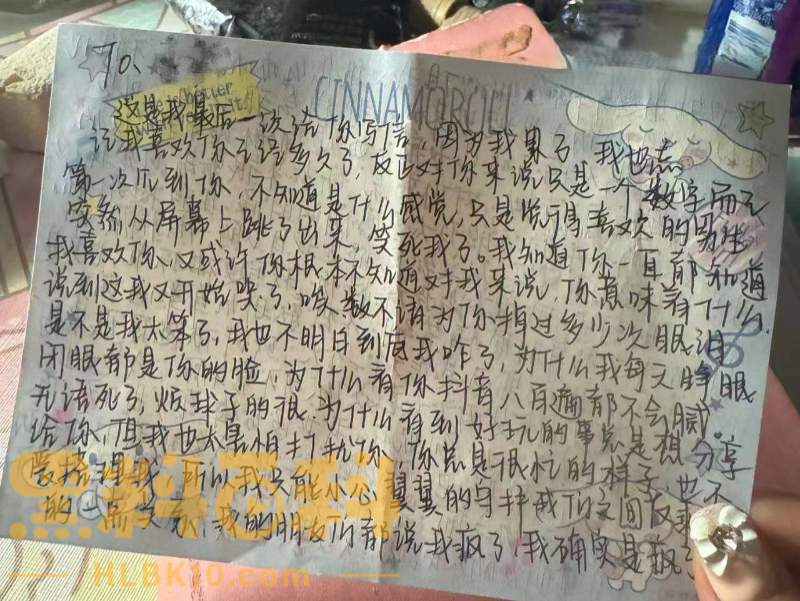 To、
CINNAMOROLL
这是我最后一次给你写信,因为我累了 我也忘
记我喜欢你已经多久了,反正对你来说只是一个数字而已
第一次见到你,不知道是什么感觉,只是觉得喜欢的男生
突然从屏幕上跳了出来,笑死我了。我知道你一直都知道
我喜欢你,又或许你根本不知道对我来说,你意味着什么.
说到这我又开始哭了,唉 数不清为你掉过多少次眼泪
是不是我太笨了,我也不明白到底我咋了,为什么我每天睁眼
闭眼都是你的脸,为什么看你抖音八百遍都不会腻.
无语死了,烦球子的很,为什么看到好玩的事总是想分享
给你,但我也太害怕打扰你,你总是很忙的样子,也不
理我,所以我只能小心翼翼的守护我们之间仅剩
的一点,我的朋友们都说我疯了,我确实是疯了
黑料百科
HLBK10.com